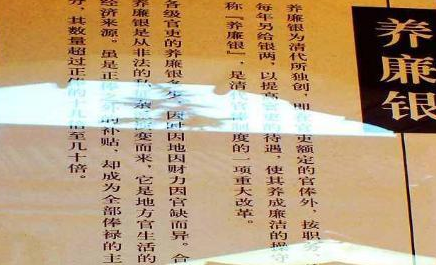 养廉银
养廉银为清代所独创，即在官吏额定的官俸外，按职务、
每年另给银两，以提高官吏的待遇，使其养成廉洁的操守
称『养廉银』，是清代官俸制度的一项重大改革。
各级官吏的养廉银多少，因时因地因财力因官缺而异。合
养廉银是从非法的变而来，它是地方官生活的
经济来源。虽是正俸之外的补贴，却成为全部俸禄的主
分，其数量超过正俸的十几倍至几十倍。